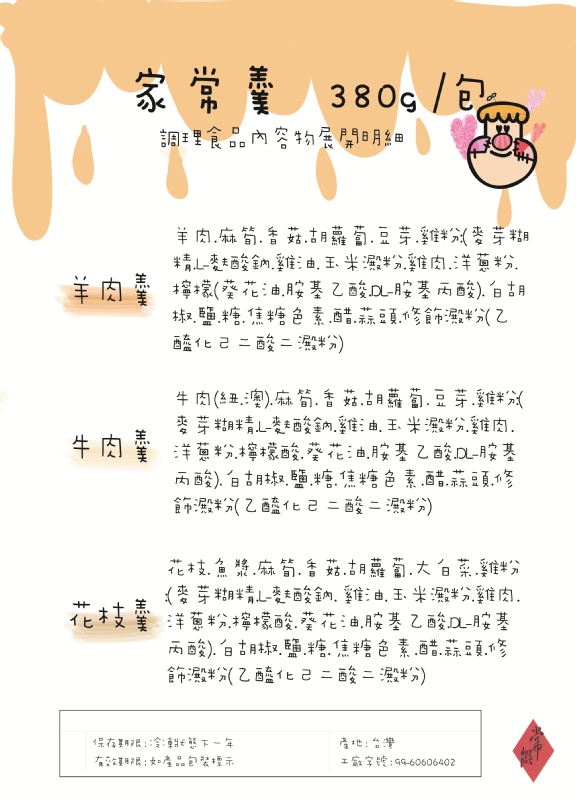 家常羹 380g/包
調理食品內容物展開明細
羊肉羹
羊肉.麻筍.香菇.胡蘿蔔.豆芽.雞粉(麥芽糊
精.L-麩酸鈉.雞油.玉米澱粉.雞肉.洋蔥粉.
檸檬(葵花油.胺基乙酸.DL-胺基丙酸).白胡
椒.鹽.糖.焦糖色素.醋.蒜頭.修飾澱粉(乙
醯化己二酸二澱粉)
牛肉羹
牛肉(紐.澳).麻筍.香菇.胡蘿蔔.豆芽.雞粉(
麥芽糊精.L-麩酸鈉.雞油.玉米澱粉.雞肉.
洋蔥粉.檸檬酸.葵花油.胺基乙酸.DL-胺基
丙酸).白胡椒.鹽.糖.焦糖色素.醋.蒜頭.修
飾澱粉(乙醯化己二酸二澱粉)
花枝羹
花枝.魚漿.麻筍.香菇.胡蘿蔔.大白菜.雞粉
(麥芽糊精.L-麩酸鈉.雞油.玉米澱粉.雞肉.
洋蔥粉.檸檬酸.葵花油.胺基乙酸.DL-胺基
丙酸).白胡椒.鹽.糖.焦糖色素.醋.蒜頭.修
飾澱粉(乙醯化己二酸二澱粉)
保存期限:冷凍狀態下一年
有效期限:如產品包裝標示
產地:台灣
工廠字號:99-60606402
常